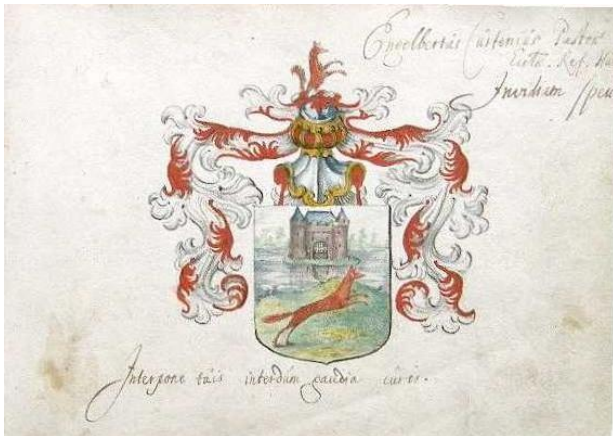 Engelbertus Curtenius Pastor
Eccl. Ref. Ha
Invidiam
Interpone tuis interdum gaudia curis.